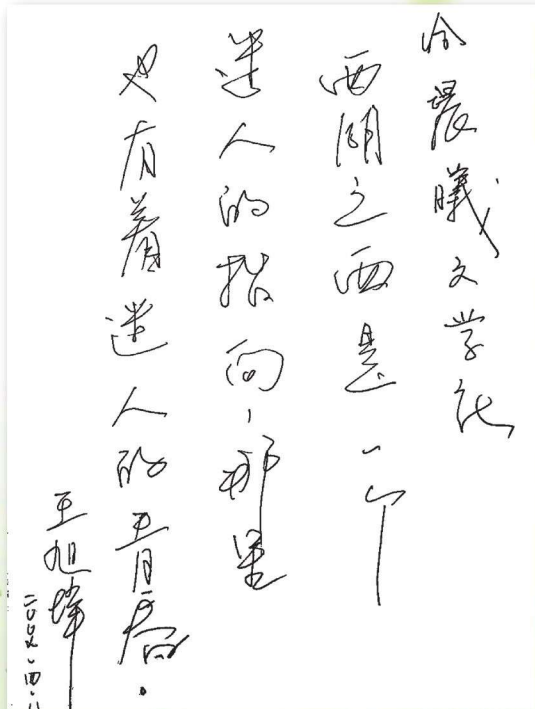 给晨曦文学社
西湖之西是一个
迷人的指向，那里
也有着迷人的青春。
王旭烽
二〇〇九、四、八